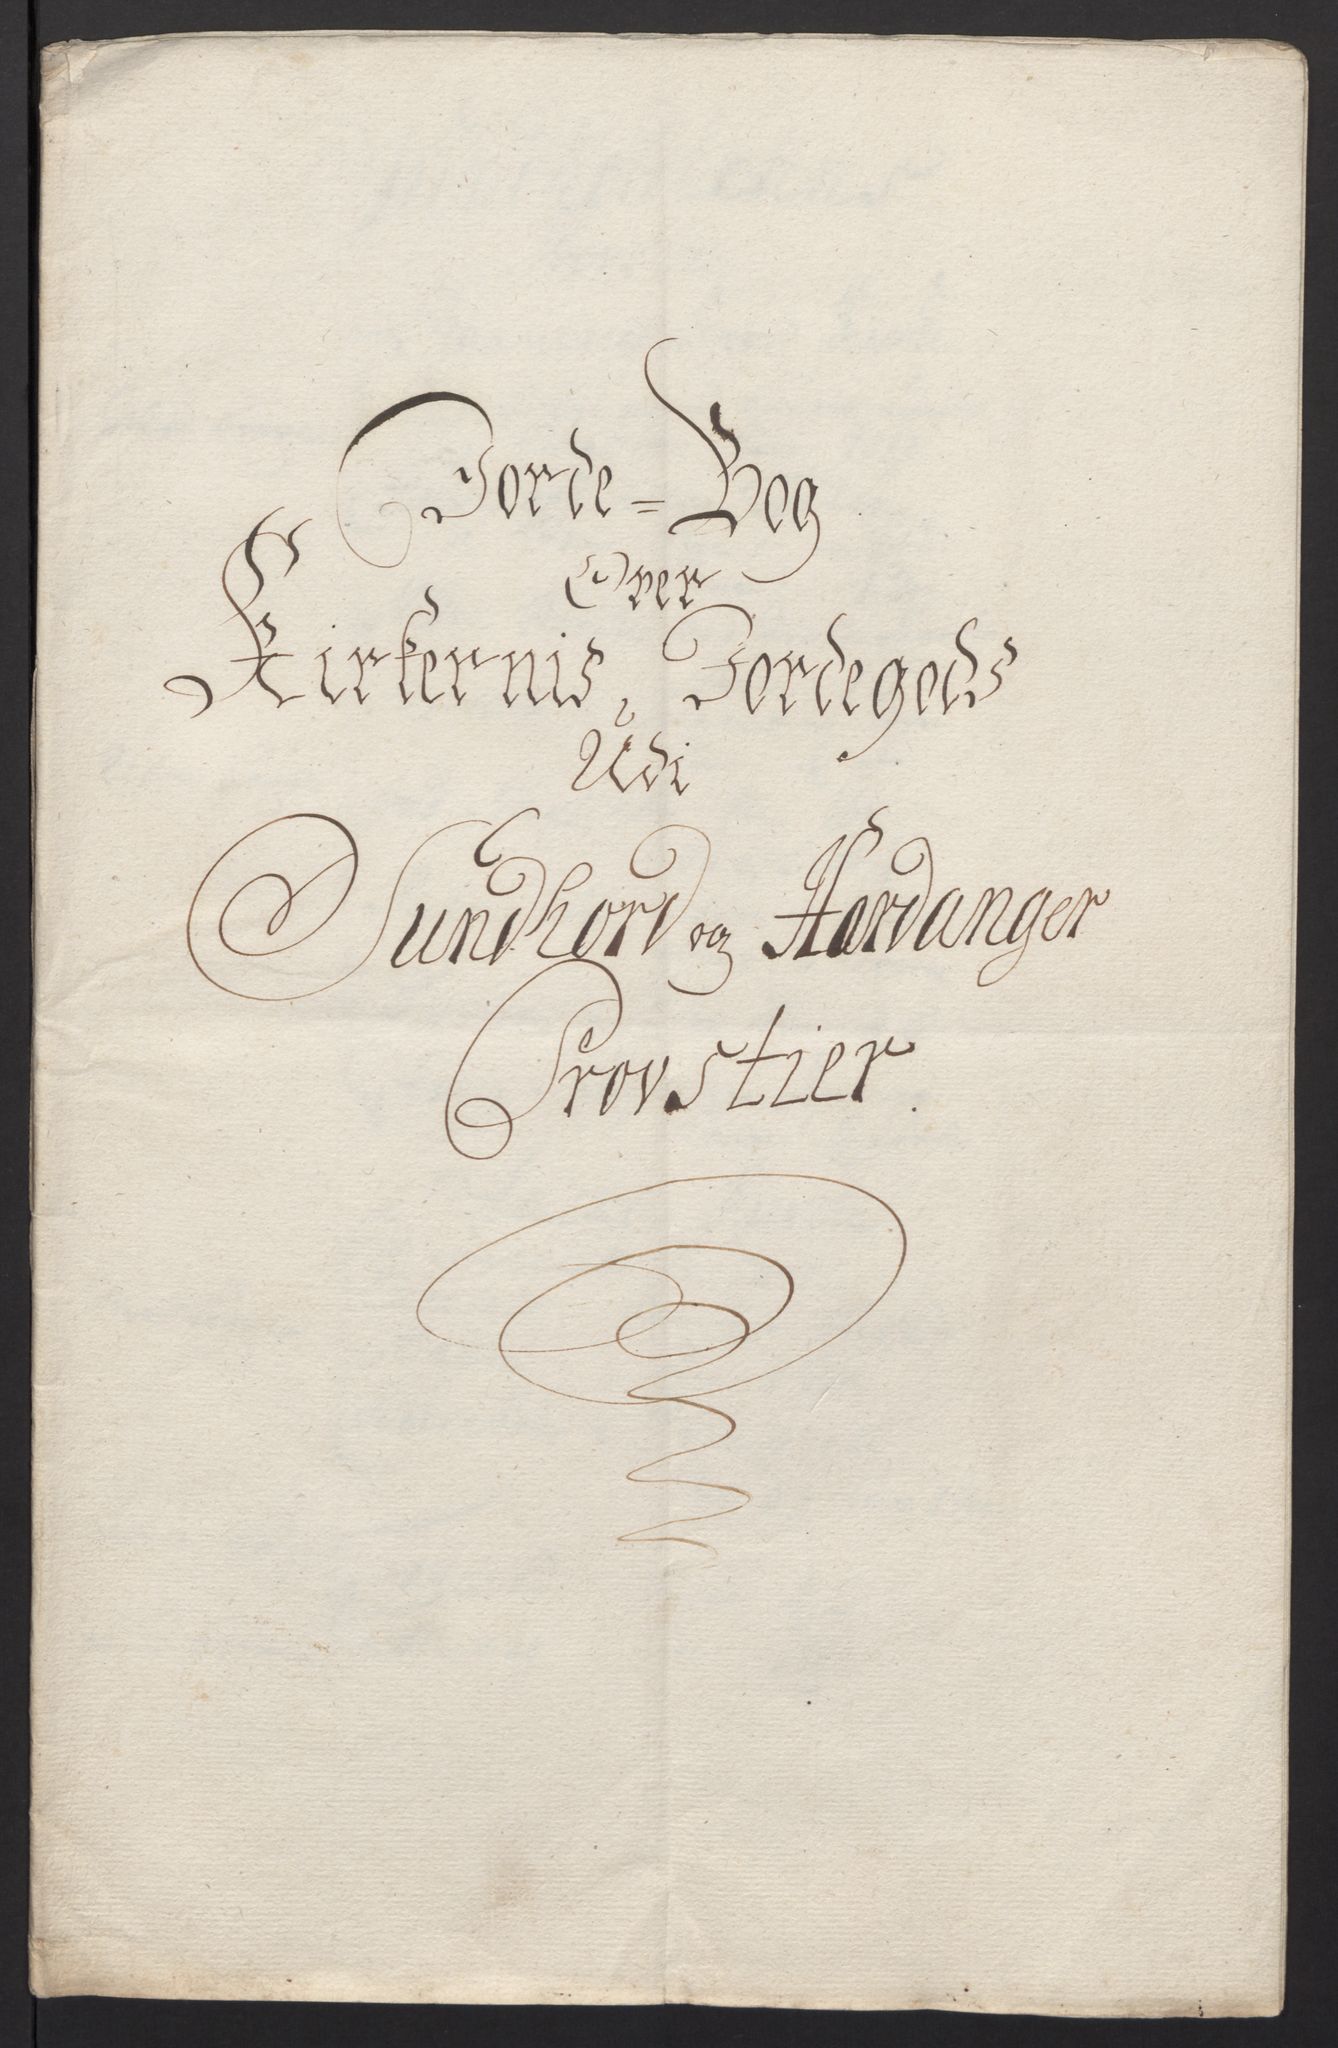 Jorde=Bog
Over
Kirkernis Jordegods
Udi
Sundhord og Hardanger
Provstier.